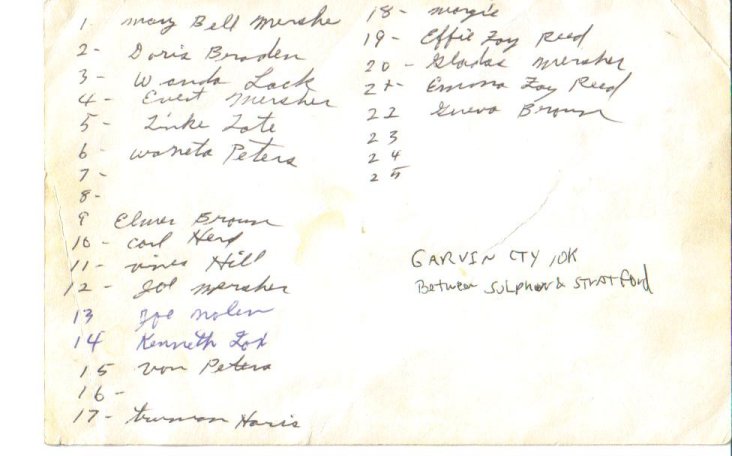 1 - Mary Bell Mersher
2 - Doris Braden
3 - Wanda Lack
4 - Evert Mersher
5 - Zinke Tate
6 - Waneta Peters
7 -
8 -
9 Elmer Brown
10 - Carl Herd
11 - Hill
12 - Joe Mersher
13 Joe Nolen
14 Kenneth Fox
15 Von Peters
16 -
17 - Truman Haris
18 - Margie
19 - Effie Fay Reed
20 - Gladas Mersher
21 - Emma Fay Reed
22 Brown
23
24
25
GARVIN CTY, OK
Between SULPHUR & STRATFORD